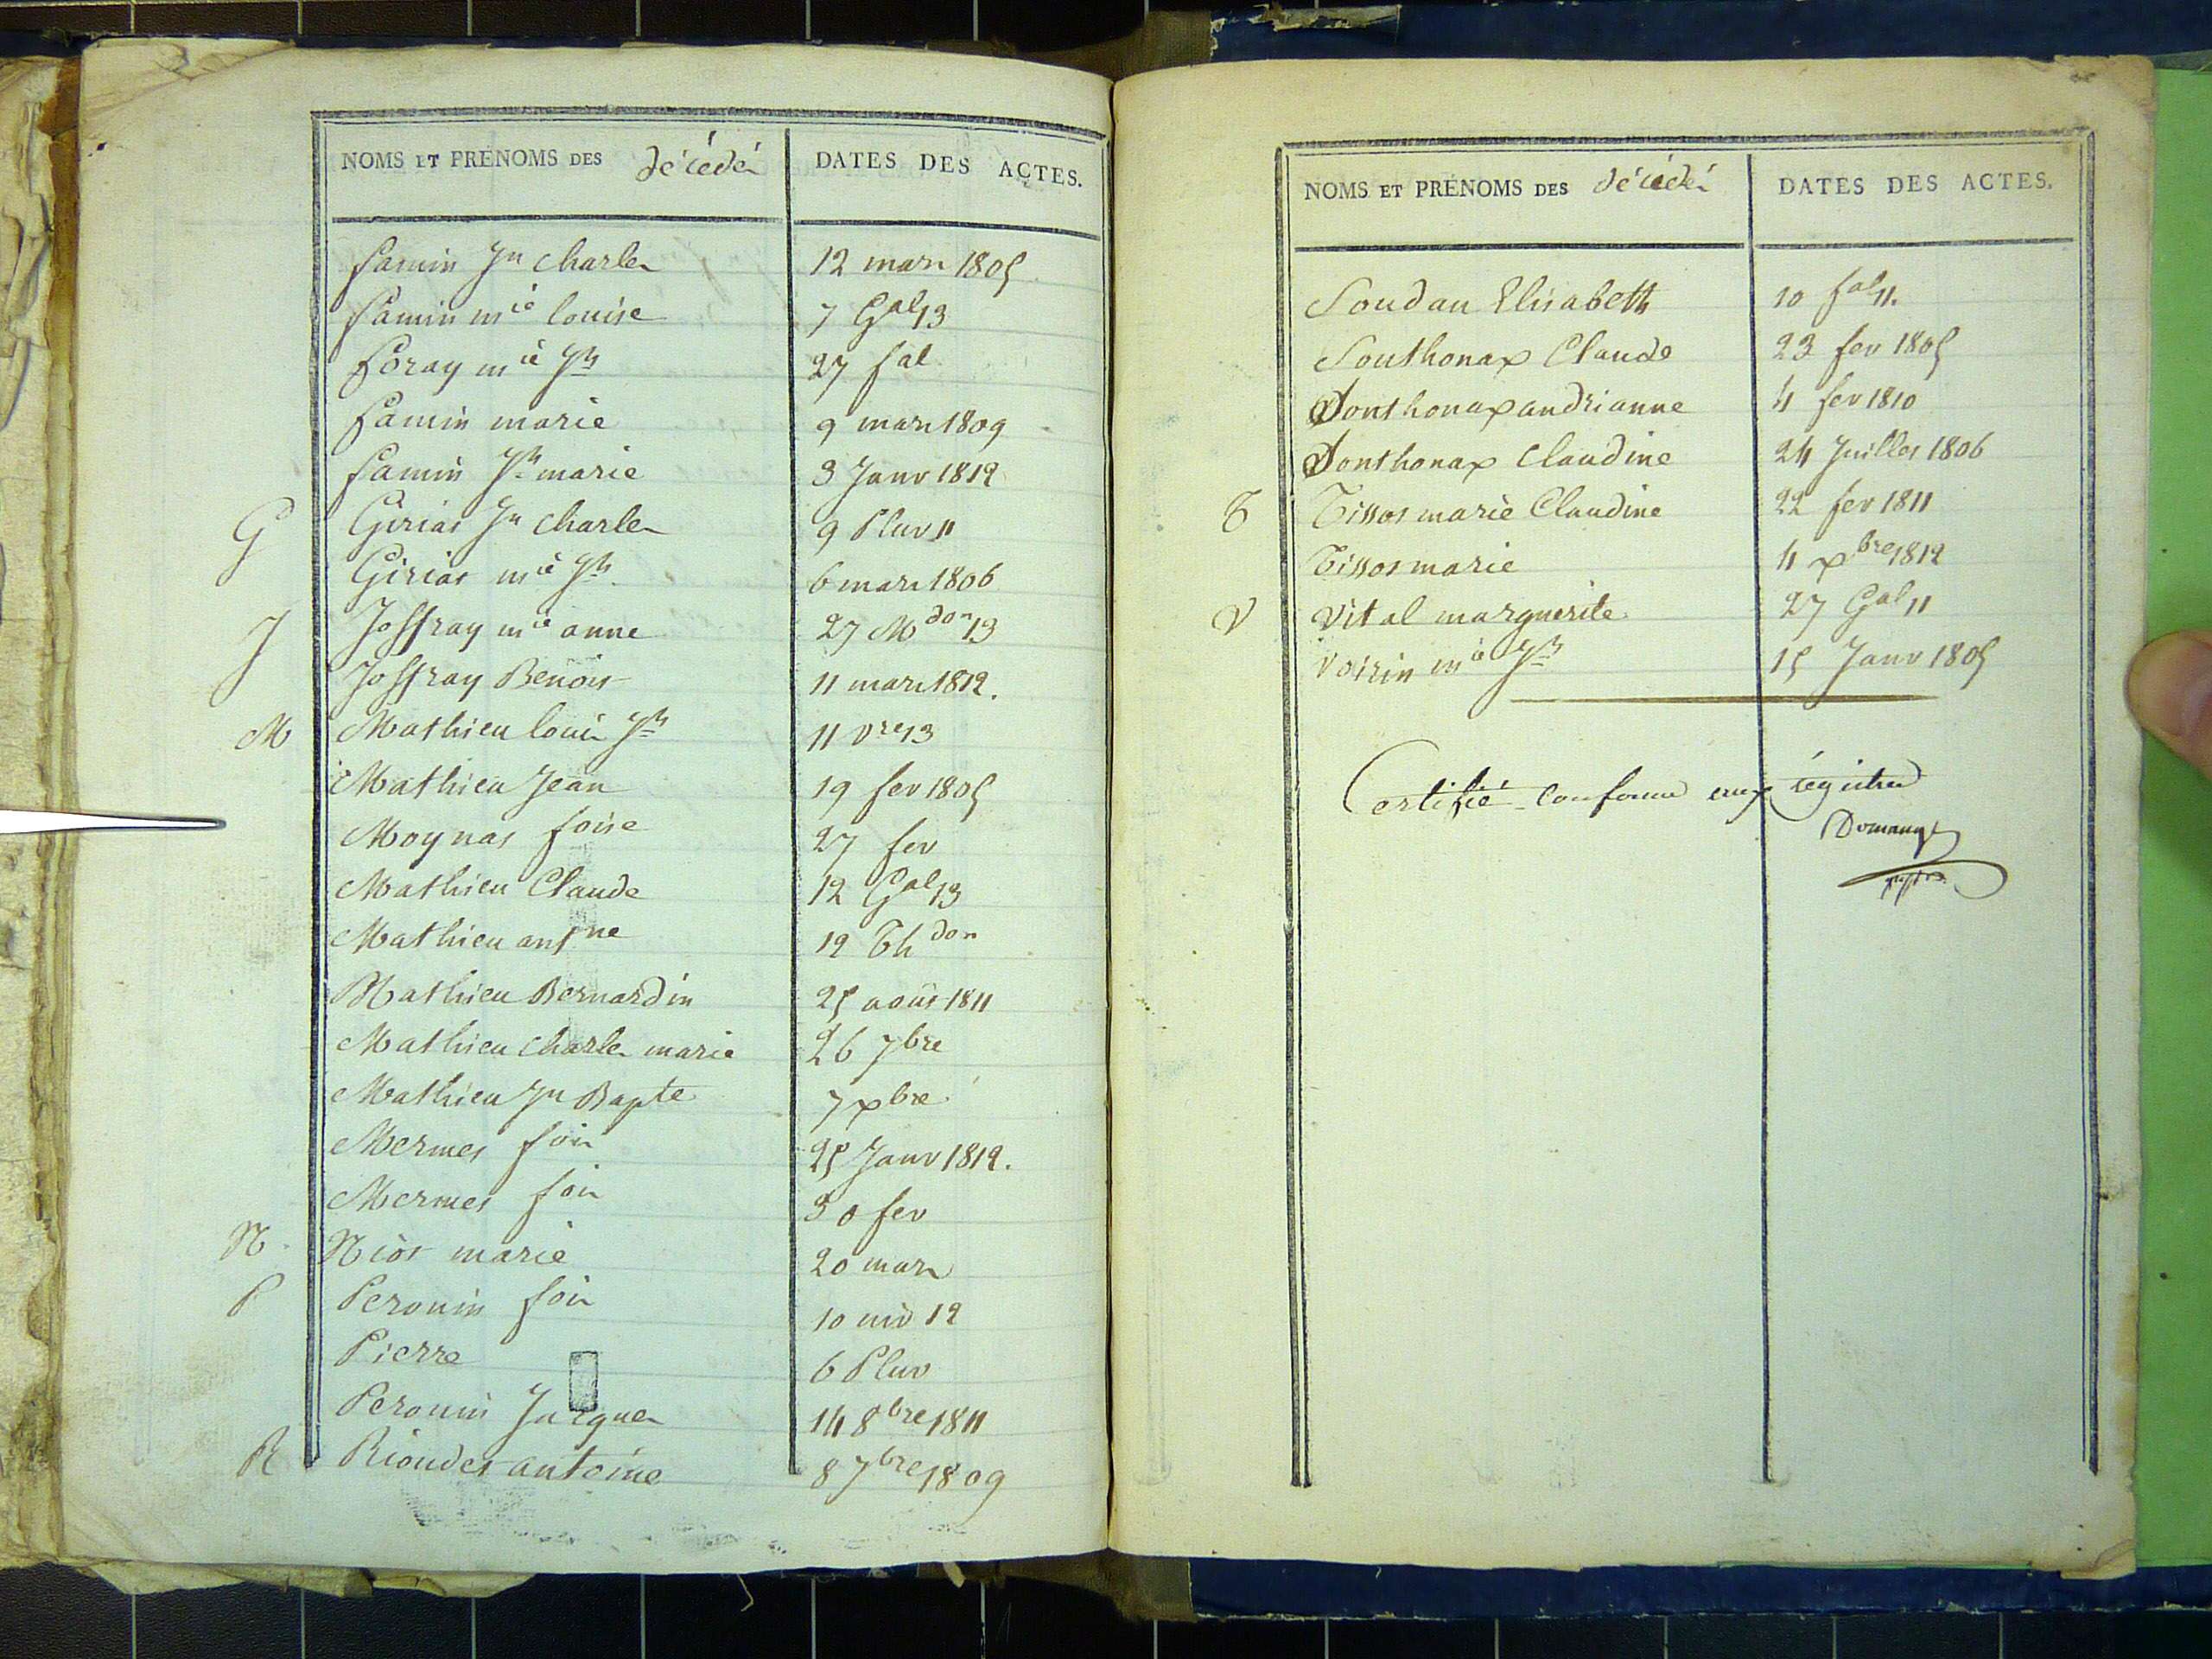 NOMS ET PRÉNOMS DES décédés DATES DES ACTES.
famin Jn charles 12 mars 1805
famin mie louise 7 Gal 13
foray mie Jh 27 fal
famin marie 9 mars 1809
famin Jh marie 3 Janv 1812
G Giriat Jn charles 9 Pluv 11
Giriat mie Jh 6 mars 1806
J Joffray mie anne 27 Mdor 13
Joffray Benoit 11 mars 1812.
M Mathieu louis Jh 11 vre 13
Mathieu Jean 19 fev 1805
Moynat foise 27 fev
Mathieu Claude 12 Gal 13
Mathieu antne 12 Thdor
Mathieu Bernardin 25 août 1811
Mathieu charles marie 26 7bre
Mathieu Jn Bapte 7 xbre
Mermet fois 25 Janv 1812.
Mermet fois 30 fev
N Niot marie 20 mars
P Peronin fois 10 niv 12
Pierre 6 Pluv
Peronin Jacques 14 8bre 1811
R Rioudet antoine 8 7bre 1809
NOMS ET PRÉNOMS DES décédés DATES DES ACTES.
Soudan Elisabeth 10 fal 11.
Southonax Claude 23 fev 1805
Sonthonax andrianne 4 fev 1810
Sonthonax Claudine 24 Juillet 1806
T Tissot marie Claudine 22 fev 1811
Tissot marie 4 xbre 1812
V Vital marguerite 27 Gal 11
Voirin mie Jh 15 Janv 1805
Certifié conforme aux régistres
Domange